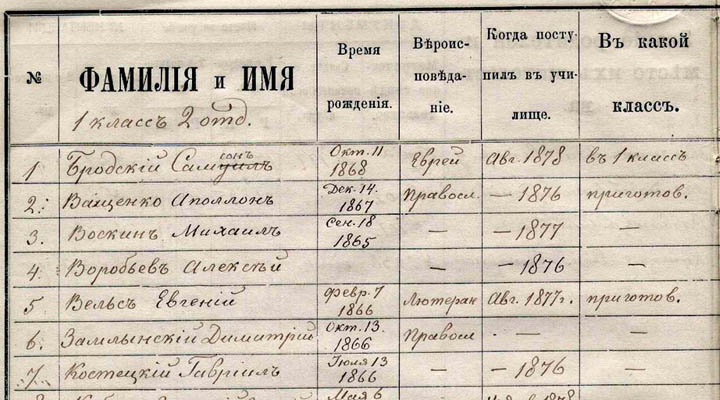 № ФАМИЛІЯ и ИМЯ Время рожденія. Вѣроисповѣданіе. Когда поступилъ въ училище. Въ какой классъ.
1 классъ 2 отд.
1. Бродскій Самуилъ сонъ Окт. 11 1868 Еврей Авг. 1878 въ 1 классъ
2. Ващенко Аполлонъ Дек. 14. 1867 Правосл. — 1876 приготов.
3. Воскинъ Михаилъ Сен. 18 1865 — — 1877 —
4. Воробьевъ Алексѣй — — 1876 —
5 Вельсъ Евгеній Февр. 7 1866 Лютеран Авг. 1877г. приготов.
6. Замлынскій Димитрій Окт. 13. 1866 Правосл — —
7. Костецкій Гавріилъ Іюля 13 1866 — — 1876 —
Мая 6